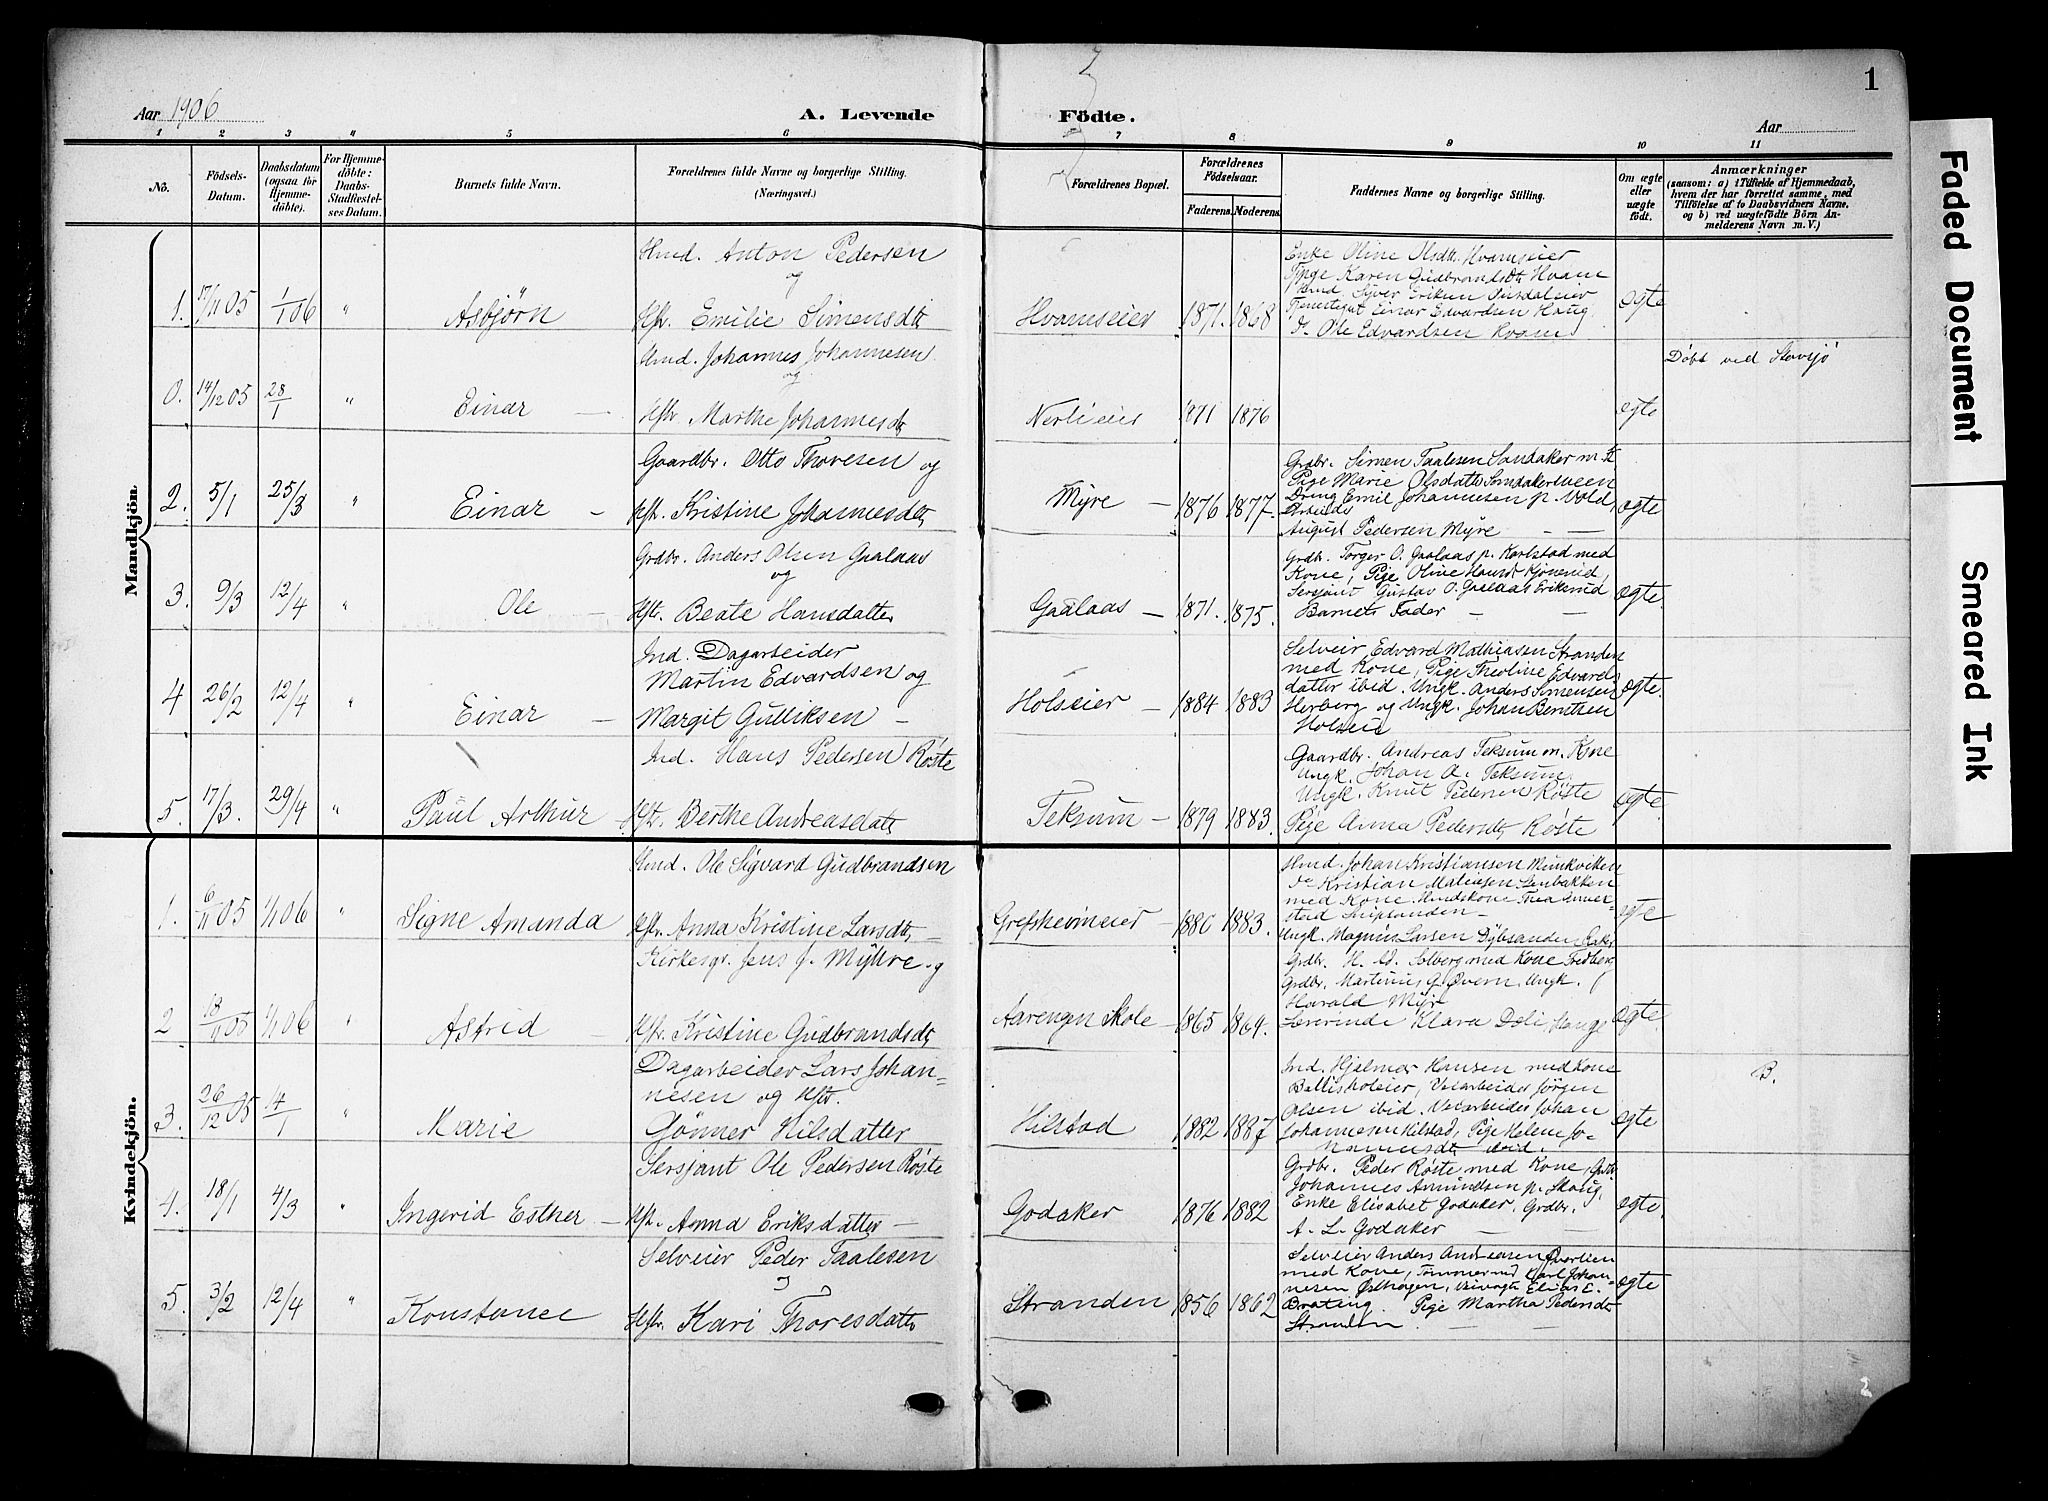 1
Aar 1906
A. Levende Födte.
Aar
1 2 3 4 5 6 7 8 9 10 11
Nô.
Födsels-Datum.
Daabsdatum (ogsaa for Hjemme-döbte).
For Hjemme-döbte: Daabs-Stadfæstel-ses Datum.
Barnets fulde Navn.
Forældrenes fulde Navne og borgerlige Stilling. (Næringsvei.)
Forældrenes Bopæl.
Forældrenes Födselsaar.
Faderens. Moderens.
Faddernes Navne og borgerlige Stilling.
Om ægte eller uægte födt.
Anmærkninger
(saasom: a) i Tilfælde af Hjemmedaab,
hvem der har forrettet samme, med
Tilföielse af to Daabsvidners Navne.
og b) ved uægtefödte Börn An-
melderens Navn m. V.)
Mandkjön.
1. 17/11 05 1/1 06 " Asbjørn
Hmd. Anton Pedersen
og
Hstr. Emilie Simensdtr
Hvamseier 1871. 1868
Enke Oline Olsdtr. Hvamseier
Pige Karen Gudbrandsdtr Hvam
Einar Edvardsen Haug
Ole Edvardsen Kvam
ægte
0. 14/12 05 28/1 " Einar —
Hmd. Johannes Johannesen
og
Hstr. Marthe Johannesdtr
1871 1876
ægte
Döbt ved Stavsjö
2. 5/1 25/3 " Einar —
Gaardbr. Otto Thoresen og
Hstr. Kristine Johannesdtr
Myre — 1876 1877.
Grdbr. Simen Taalesen Sandaker m. K
Pige Marie Olsdatter
Dreng Emil Johannesen p. Vold
August Pedersen Myre — —
ægte
3. 9/3 12/4 " Ole —
Grdbr. Anders Olsen Gaalaas
og
Hstr. Beate Hansdatter
Gaalaas — 1871. 1875.
Grdbr. Torger O. Gaalaas p. Karlstad med
Kone, Pige Oline Hansdtr
Sersjant Gustav O. Gaalaas Eriksrud
Barnets Fader — —
ægte.
4 26/2 12/4 " Einar —
Ind. Dagarbeider
Martin Edvardsen og
Margit Gulliksen —
Holseier — 1884 1883
Selveier Edvard Mathiasen Stranden
med Kone, Pige Theoline Edvards
datter ibid. Ungk. Anders Simensen
Herberg og Ungk. Johan Berntsen
Holseier
ægte.
5. 17/3. 29/4 " Paul Arthur —
Ind. Hans Pedersen Røste
Hstr. Berthe Andreasdatter
Teksum — 1879 1883.
Gaardbr. Andreas Teksum m. Kone
Ungk. Johan A. Teksum
Ungk. Knut Pedersen Røste
Pige Anna Pedersdtr Røste
ægte.
Kvindekjön.
1. 6/11 05 1/1 06 " Signe Amanda
Hmd. Ole Sigvard Gudbrandsen
Hstr. Anna Kristine Larsdtr —
Grefsheimeier — 1880 1883.
Hmd. Johan Kristiansen
Kristian
med Kone
Ungk. Magnus Larsen
ægte
2 18/11 05 1/1 06 " Astrid —
Kirkesgr. Jens J. Myhre. og
Hstr. Kristine Gudbrandsdtr
Aarengen Skole — 1865 1864.
Grdbr. H. Solberg med Kone
Grdbr. Martinius G. Øvern, Ungk.
Harald Myr
Lærerinde Klara Døli Stange
ægte.
3. 26/12 05 14/1 " Marie
Dagarbeider Lars Johan-
nesen og Hstr.
Gønner Nilsdatter
Hilstad 1882 1887
Ind. Hjalmer Hansen med Kone
Ballishøleier, Veiarbeider Jørgen
Olsen ibid. Veiarbeider Johan
Johannesen Hilstad, Pige Helene Jo-
hannesdtr ibid.
ægte
B.
4. 18/1 4/3 " Ingerid Esther —
Sersjant Ole Pedersen Røste
Hstr. Anna Eriksdatter —
Godaker 1876 1882
Grdbr. Peder Røste med Kone, Grdbr
Johannes Amundsen p. Skaug,
Enke Elisabet Godaker, Grdbr.
A. L. Godaker —
ægte.
5. 3/2 12/4 " Konstance
Selveier Peder Taalesen
og
Hstr. Kari Thoresdatter
Stranden 1856 1862
Selveier Anders Andreasen Øverlien
med Kone, Tømmermd Karl Johan-
nesen Østhagen, Elias E.
Brating. Pige Martha Pedersdtr
Stranden — —
ægte
2
Faded Document
Smeared Ink